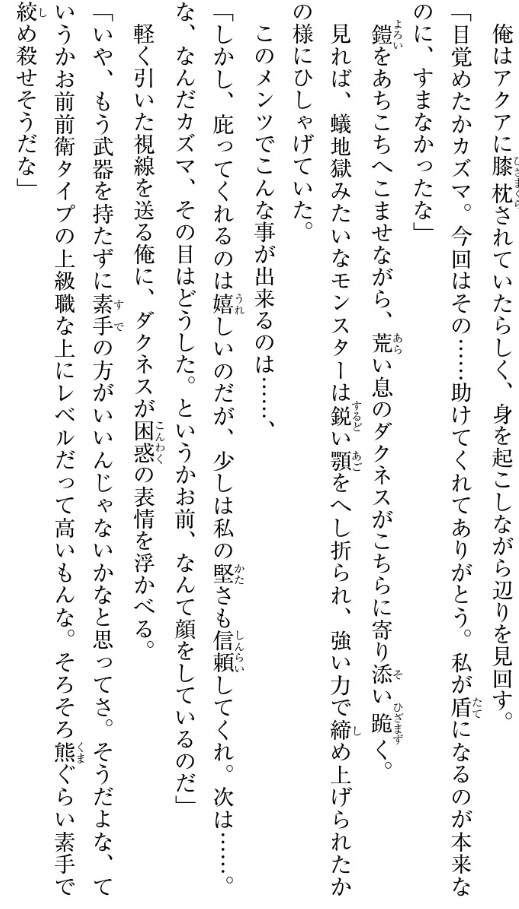 俺はアクアに膝枕されていたらしく、身を起こしながら辺りを見回す。
「目覚めたかカズマ。今回はその……助けてくれてありがとう。私が盾になるのが本来な
のに、すまなかったな」
　鎧をあちこちへこませながら、荒い息のダクネスがこちらに寄り添い跪く。
　見れば、蟻地獄みたいなモンスターは鋭い顎をへし折られ、強い力で締め上げられたか
の様にひしゃげていた。
　このメンツでこんな事が出来るのは……、
「しかし、庇ってくれるのは嬉しいのだが、少しは私の堅さも信頼してくれ。次は……。
な、なんだカズマ、その目はどうした。というかお前、なんて顔をしているのだ」
　軽く引いた視線を送る俺に、ダクネスが困惑の表情を浮かべる。
「いや、もう武器を持たずに素手の方がいいんじゃないかなと思ってさ。そうだよな、て
いうかお前前衛タイプの上級職な上にレベルだって高いもんな。そろそろ熊ぐらい素手で
絞め殺せそうだな」